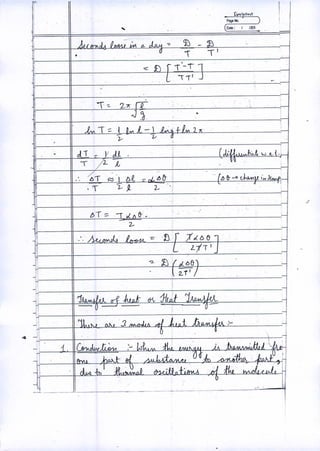 Page No.
Date: / /
Seconds loose in a day = D/T - D/T'
= D [ T'-T / TT' ]
T = 2π √(l/g)
ln T = 1/2 ln l - 1/2 ln g + ln 2π
dT/T = 1/2 dl/l (differential w.r.t.
∴ ΔT/T ≈ 1/2 Δl/l = αΔθ/2 (Δθ → change in temp
ΔT = TαΔθ/2 .
∴ Seconds loose = D [ TαΔθ / 2TT' ]
= D (αΔθ / 2T')
Transfer of heat or Heat Transfer
There are 3 modes of heat transfer :-
1. Conduction :- When the energy is transmitted fro
one part of substance to another part,
due to thermal oscillations of the molecule